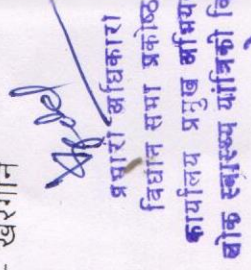 - खरगोन
प्रभारी अधिकारी
विधान सभा प्रकोष्ठ
कार्यालय प्रमुख
लोक स्वास्थ्य यांत्रिकी